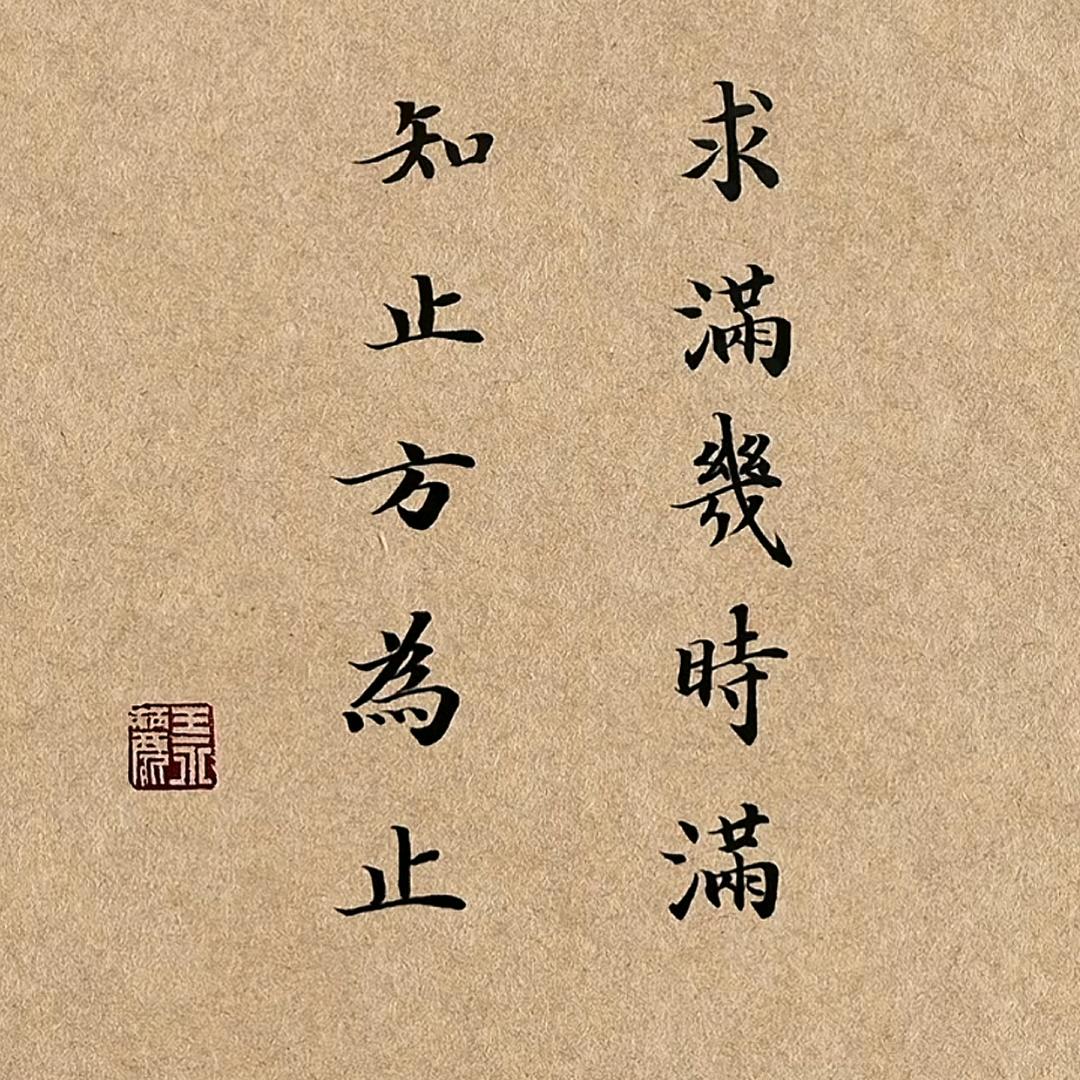 求滿幾時滿
知止方為止